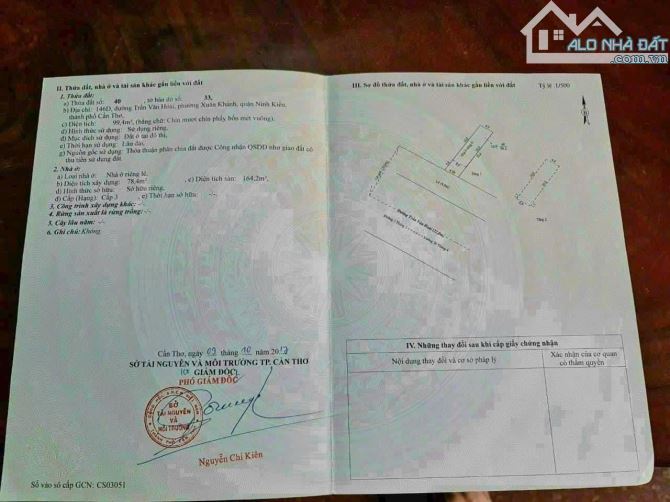 ALO NHÀ ĐẤT
II. Thửa đất, nhà ở và tài sản khác gắn liền với đất
1. Thửa đất:
a) Thửa đất số: 40, tờ bản đồ số: 33,
b) Địa chỉ: 146D, đường Trần Văn Hoài, phường Xuân Khánh, quận Ninh Kiều,
thành phố Cần Thơ,
c) Diện tích: 99,4m², (bằng chữ: Chín mươi chín phẩy bốn mét vuông),
d) Hình thức sử dụng: Sử dụng riêng,
đ) Mục đích sử dụng: Đất ở tại đô thị,
e) Thời hạn sử dụng: Lâu dài,
g) Nguồn gốc sử dụng: Thỏa thuận phân chia đất được Công nhận QSDĐ như giao đất có
thu tiền sử dụng đất.
2. Nhà ở:
a) Loại nhà ở: Nhà ở riêng lẻ,
b) Diện tích xây dựng: 78,4m², c) Diện tích sàn: 164,2m²,
d) Hình thức sở hữu: Sở hữu riêng,
đ) Cấp (Hạng): Cấp 3 e) Thời hạn sở hữu: -/-
3. Công trình xây dựng khác: -/-
4. Rừng sản xuất là rừng trồng: -/-
5. Cây lâu năm: -/-
6. Ghi chú: Không.
Cần Thơ, ngày 09 tháng 10 năm 2017
SỞ TÀI NGUYÊN VÀ MÔI TRƯỜNG TP. CẦN THƠ
GIÁM ĐỐC
PHÓ GIÁM ĐỐC
SỞ
TÀI NGUYÊN
VÀ
MÔI TRƯỜNG
Nguyễn Chí Kiên
Số vào sổ cấp GCN: CS03051
III. Sơ đồ thửa đất, nhà ở và tài sản khác gắn liền với đất
Tỷ lệ 1/500
Đường Trần Văn Hoài
IV. Những thay đổi sau khi cấp giấy chứng nhận
Nội dung thay đổi và cơ sở pháp lý
Xác nhận của cơ quan
có thẩm quyền